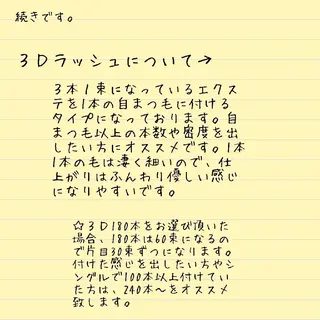 続きです。
３Ｄラッシュについて→
３本１束になっているエクス
テを1本の自まつもに付ける
タイプになっております。自
まつも以上の本数や密度を出
したい方にオススメです。1本
1本のもは凄く細いので、仕
上がりはふんわり優しい感じ
になりやすいです。
☆３Ｄ180本をお選び頂いた
場合、180本は60束になるの
で片目30束ずつになります。
付けた感じを出したい方やシ
ングルで100本以上付けてい
た方は、240本〜をオススメ
致します。